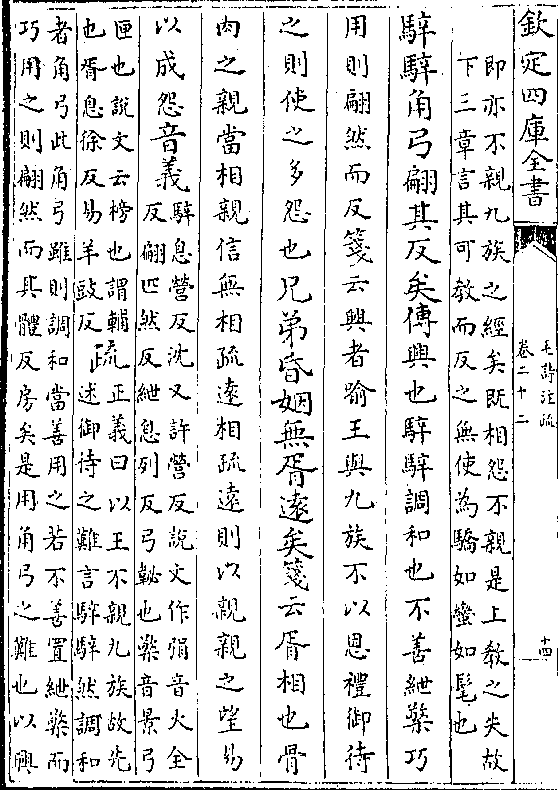 欽定四庫全書
毛詩注疏
卷二十二
十四
即亦不親九族之經矣既相怨不親是上教之失故
下三章言其可教而反之無使為驕如蠻如髦也
騂騂角弓翩其反矣傳興也騂騂調和也不善紲檠巧
用則翩然而反箋云興者喻王與九族不以恩禮御待
之則使之多怨也兄弟昏姻無胥遠矣箋云胥相也骨
肉之親當相親信無相疏遠相疏遠則以親親之望易
以成怨音義騂息營反沈又許營反說文作弲音火全
反翩匹然反紲息列反弓䪐也檠音景弓
匣也說文云榜也謂輔
也胥息徐反易羊豉反
疏正義曰以王不親九族故先
述御待之難言騂騂然調和
者角弓此角弓雖則調和當善用之若不善置紲檠而
巧用之則翩然而其體反房矣是用角弓之難也以興